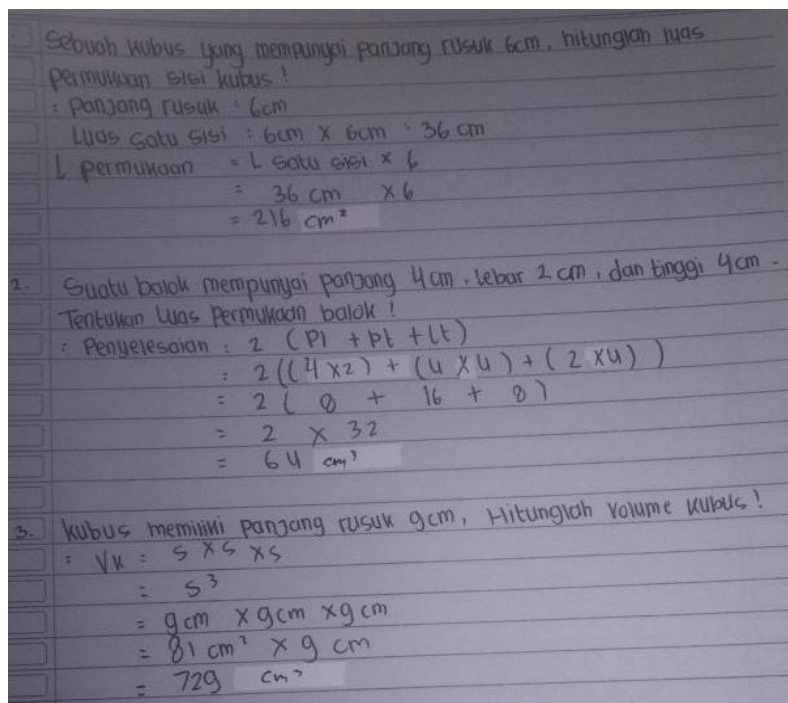 Sebuah kubus yang mempunyai panjang rusuk 6cm, hitunglah luas
permukaan sisi kubus !
: panjang rusuk : 6cm
Luas satu sisi : 6cm x 6cm : 36 cm
L permukaan = L satu sisi x 6
= 36 cm x 6
= 216 cm²
2. Suatu balok mempunyai panjang 4cm, lebar 2 cm, dan tinggi 4cm.
Tentukan luas permukaan balok !
: Penyelesaian : 2 (Pl + pt + lt)
: 2 ((4 x 2) + (4 x 4) + (2 x 4))
= 2 ( 8 + 16 + 8)
= 2 x 32
= 64 cm³
3. kubus memiliki panjang rusuk 9cm, Hitunglah volume kubus !
: Vk = s x s x s
= s³
= 9cm x 9cm x 9cm
= 81 cm² x 9 cm
= 729 cm³